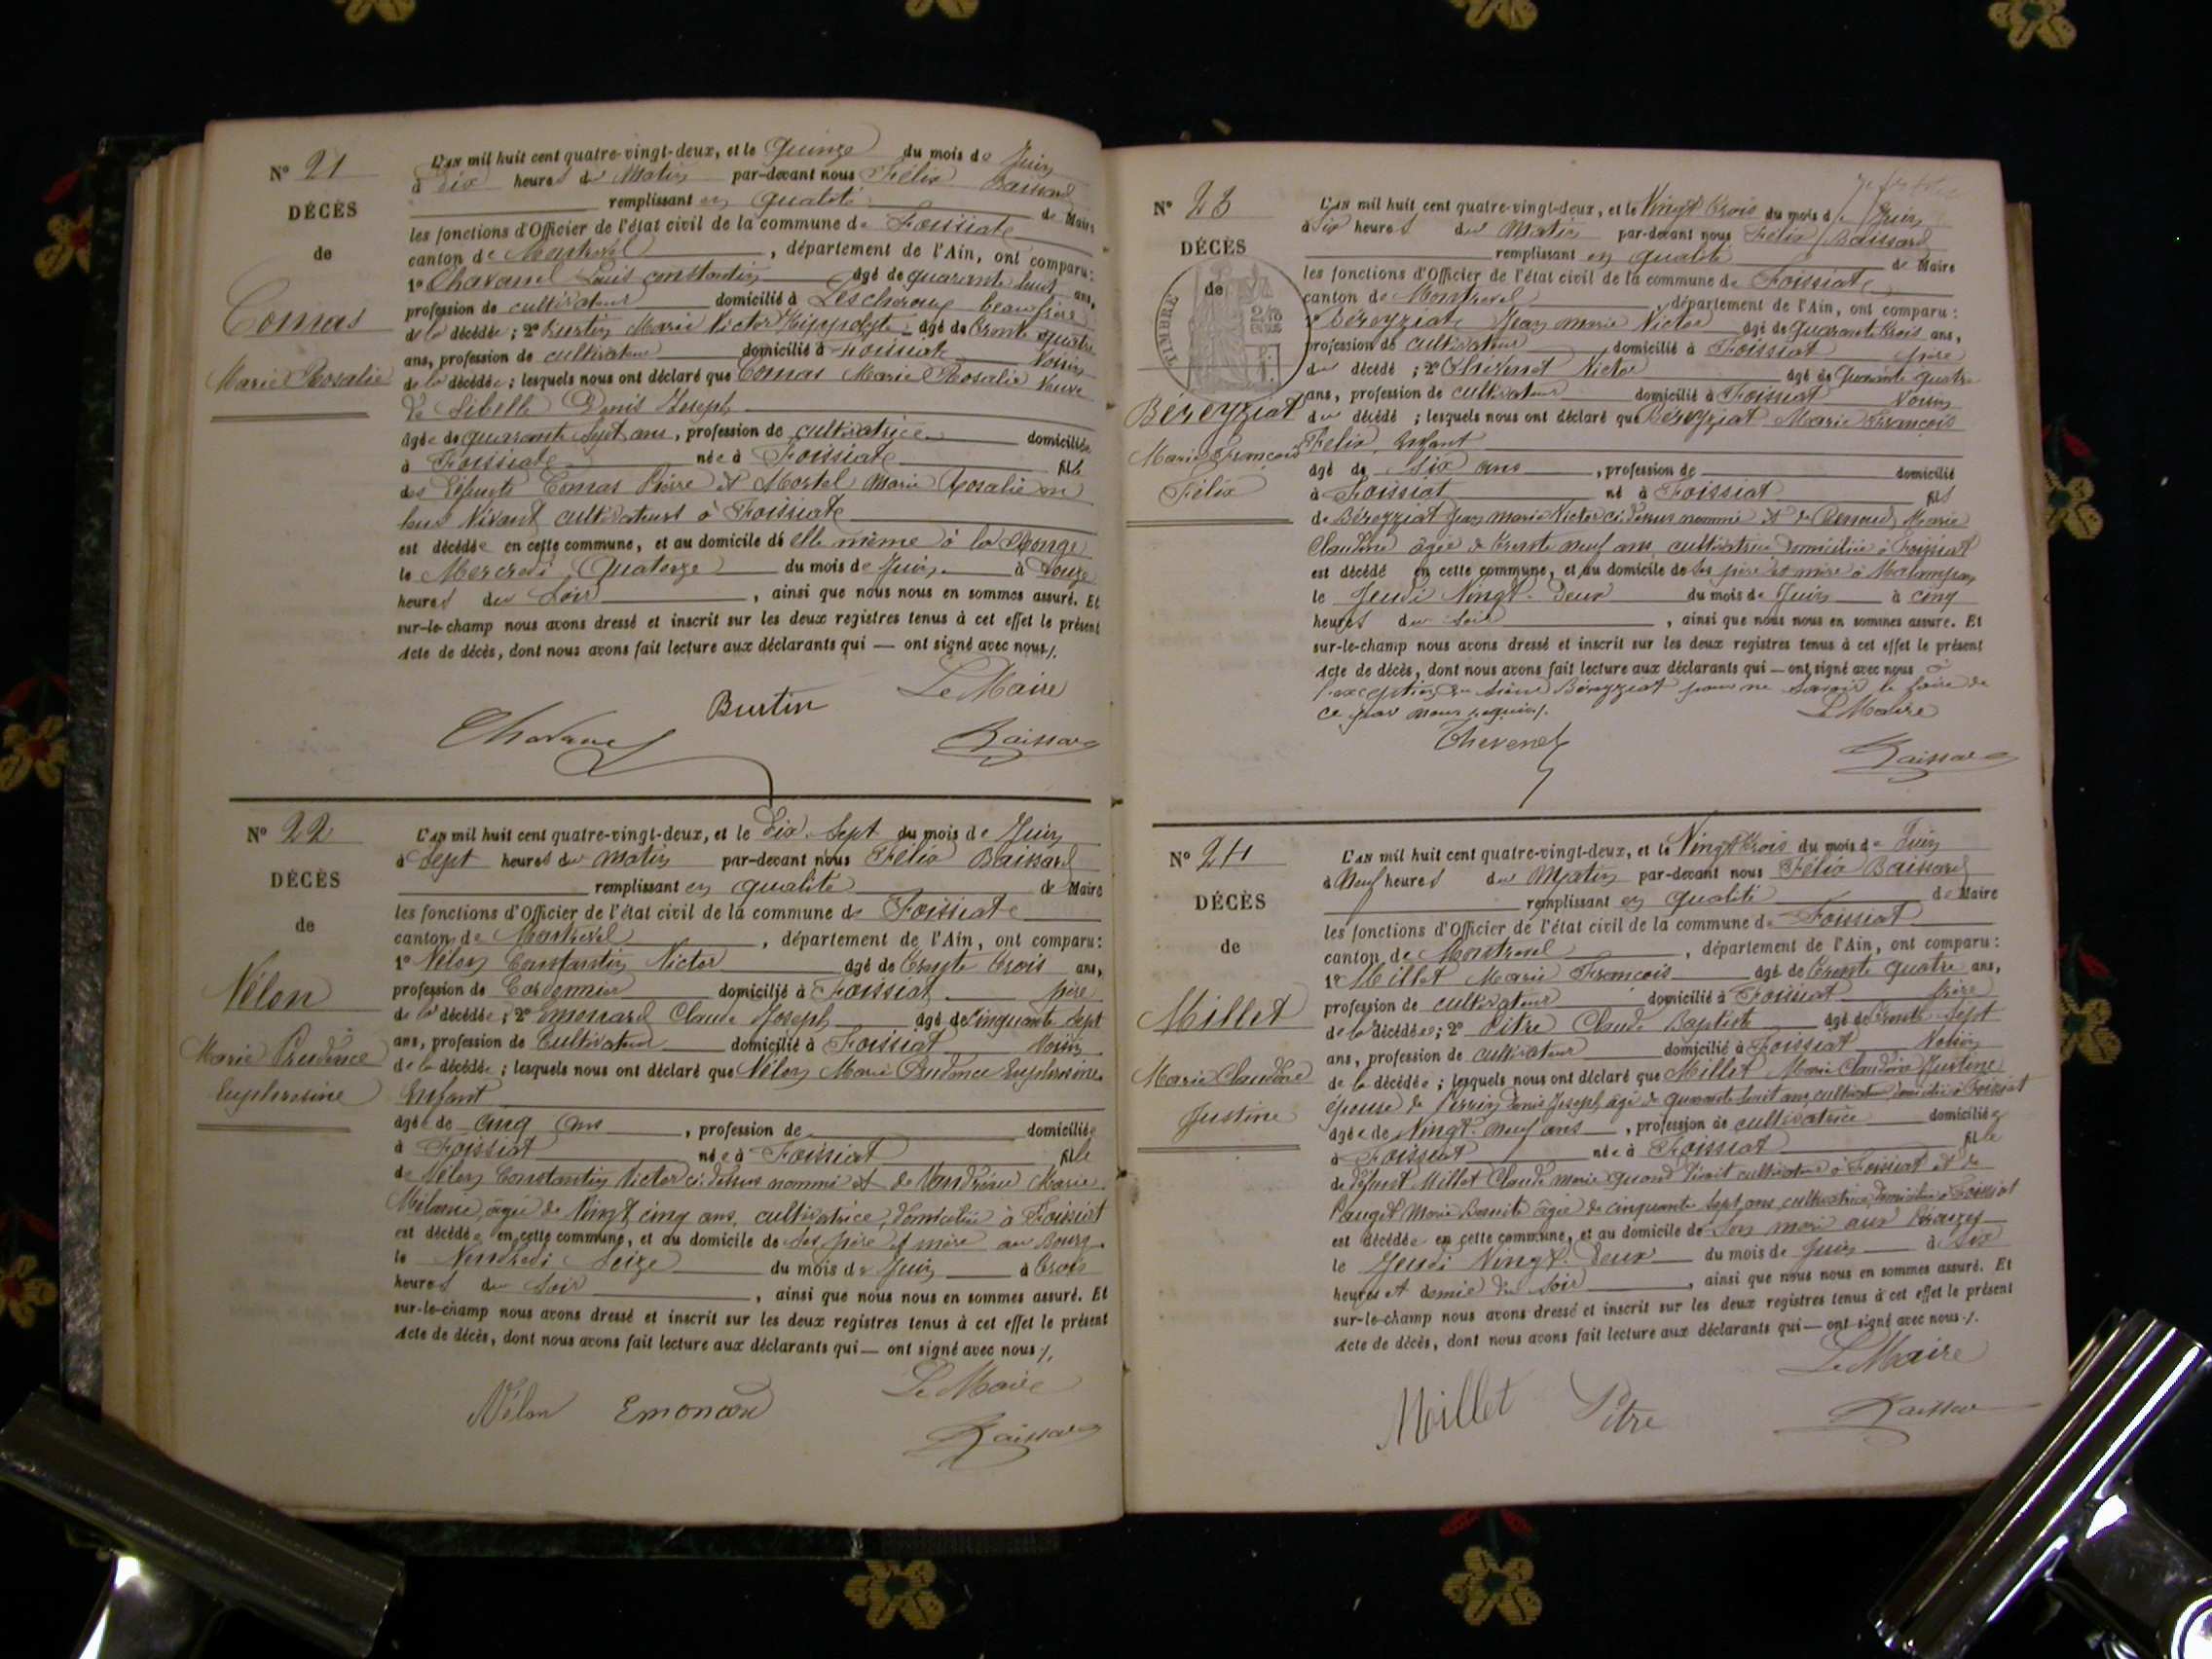 N° 21
DÉCÈS
de
Comas
Marie Rosalie
L'AN mil huit cent quatre-vingt-deux, et le Quinze du mois de Juin
à Dix heures du Matin par-devant nous Félix Baissard
remplissant en qualité de Maire
les fonctions d'Officier de l'état civil de la commune de Foissiat
canton de Montrevel, département de l'Ain, ont comparu:
1° Chavanel Louis constantin âgé de quarante huit ans,
profession de cultivateur domicilié à Lescheroux beau frère
de la décédée; 2° Burtin Marie Victor Hippolyte âgé de trente quatre
ans, profession de cultivateur domicilié à Foissiat Voisin
de la décédée; lesquels nous ont déclaré que Comas Marie Rosalie Veuve
de Sibelle Denis Joseph
âgée de quarante Sept ans, profession de cultivatrice domiciliée
à Foissiat née à Foissiat fille
des Défunts Comas Pierre et Mortel Marie Rosalie en
leur Vivant cultivateurs à Foissiat
est décédée en cette commune, et au domicile de elle même à la
le Mercredi Quatorze du mois de Juin à Douze
heures du Soir, ainsi que nous nous en sommes assuré. Et
sur-le-champ nous avons dressé et inscrit sur les deux registres tenus à cet effet le présent
Acte de décès, dont nous avons fait lecture aux déclarants qui — ont signé avec nous /.
Le Maire
Burtin
Chavanel
Baissard
N° 22
DÉCÈS
de
Vélon
Marie Prudence
Euphrosine
L'AN mil huit cent quatre-vingt-deux, et le Dix-Sept du mois de Juin
à Sept heures du matin par-devant nous Félix Baissard
remplissant en qualité de Maire
les fonctions d'Officier de l'état civil de la commune de Foissiat
canton de Montrevel, département de l'Ain, ont comparu:
1° Vélon Constantin Victor âgé de trente trois ans,
profession de Cordonnier domicilié à Foissiat père
de la décédée; 2° Emonard Claude Joseph âgé de Cinquante Sept
ans, profession de Cultivateur domicilié à Foissiat Voisin
de la décédée; lesquels nous ont déclaré que Vélon Marie Prudence Euphrosine
Enfant
âgée de cinq ans, profession de domiciliée
à Foissiat née à Foissiat fille
de Vélon Constantin Victor ci-dessus nommé et de Marie
Mélanie, âgée de Vingt cinq ans, cultivatrice, domiciliée à Foissiat
est décédée en cette commune, et au domicile de Ses père et mère au Bourg
le Vendredi Seize du mois de Juin à trois
heures du soir, ainsi que nous nous en sommes assuré. Et
sur-le-champ nous avons dressé et inscrit sur les deux registres tenus à cet effet le présent
Acte de décès, dont nous avons fait lecture aux déclarants qui — ont signé avec nous /.
Le Maire
Vélon Emonard
Baissard
N° 23
DÉCÈS
de
TIMBRE
Béreyziat
Marie François
Félix
L'AN mil huit cent quatre-vingt-deux, et le Vingt trois du mois de Juin
à Six heures du Matin par-devant nous Félix Baissard
remplissant en qualité de Maire
les fonctions d'Officier de l'état civil de la commune de Foissiat
canton de Montrevel, département de l'Ain, ont comparu:
1° Béreyziat Jean marie Victor âgé de quarante trois ans,
profession de cultivateur domicilié à Foissiat père
du décédé; 2° Thévenet Victor âgé de Quarante quatre
ans, profession de cultivateur domicilié à Foissiat Voisin
du décédé; lesquels nous ont déclaré que Béreyziat Marie François
Félix, Enfant
âgé de Six ans, profession de domicilié
à Foissiat né à Foissiat fils
de Béreyziat Jean marie Victor ci-dessus nommé et de Marie
Claudine âgée de trente neuf ans, cultivatrice domiciliée à Foissiat
est décédé en cette commune, et au domicile de Ses père et mère à
le Jeudi Vingt-Deux du mois de Juin à cinq
heures du soir, ainsi que nous nous en sommes assuré. Et
sur-le-champ nous avons dressé et inscrit sur les deux registres tenus à cet effet le présent
Acte de décès, dont nous avons fait lecture aux déclarants qui — ont signé avec nous à
l'exception du sieur Béreyziat pour ne savoir le faire de
ce par nous requis /.
Le Maire
Thevenet
Baissard
N° 24
DÉCÈS
de
Millet
Marie Claudine
Justine
L'AN mil huit cent quatre-vingt-deux, et le Vingt trois du mois de Juin
à Neuf heures du Matin par-devant nous Félix Baissard
remplissant en qualité de Maire
les fonctions d'Officier de l'état civil de la commune de Foissiat
canton de Montrevel, département de l'Ain, ont comparu:
1° Millet Marie François âgé de trente quatre ans,
profession de cultivateur domicilié à Foissiat frère
de la décédée; 2° Pitre Claude Baptiste âgé de trente-Sept
ans, profession de cultivateur domicilié à Foissiat Voisin
de la décédée; lesquels nous ont déclaré que Millet Marie Claudine Justine
épouse de Perrin Denis Joseph, âgé de quarante huit ans, cultivateur domicilié à Foissiat
âgée de Vingt-neuf ans, profession de cultivatrice domiciliée
à Foissiat née à Foissiat fille
de défunt Millet Claude Marie quand vivait cultivateur à Foissiat et de
Pauget Marie Benoite âgée de cinquante Sept ans, cultivatrice, domiciliée à Foissiat
est décédée en cette commune, et au domicile de Son mari aux
le Jeudi Vingt-Deux du mois de Juin à Six
heures et demie du soir, ainsi que nous nous en sommes assuré. Et
sur-le-champ nous avons dressé et inscrit sur les deux registres tenus à cet effet le présent
Acte de décès, dont nous avons fait lecture aux déclarants qui — ont signé avec nous /.
Le Maire
Millet Pitre
Baissard